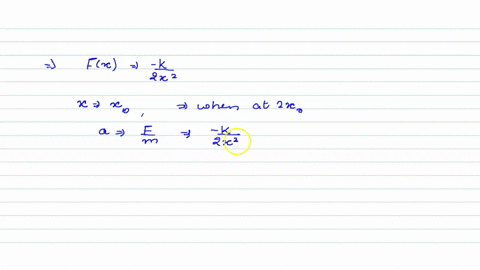 ⇒ F(x) ⇒ -k/2x²
x ⇒ x₀, ⇒ when at 2x₀
a ⇒ F/m ⇒ -k/2x²